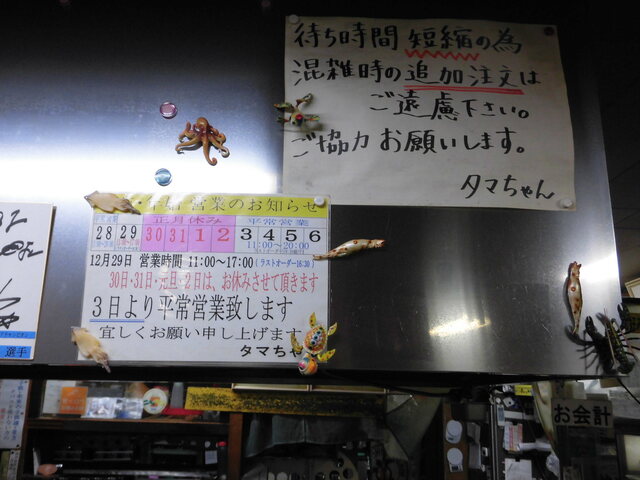 待ち時間短縮の為
混雑時の追加注文は
ご遠慮下さい。
ご協力お願いします。
タマちゃん
営業のお知らせ
正月休み
平常営業
28 29 30 31 1 2 3 4 5 6
11:00〜20:00
12月29日 営業時間 11:00〜17:00 (ラストオーダー16:30)
30日・31日・元旦・2日は、お休みさせて頂きます
3日より平常営業致します
宜しくお願い申し上げます
タマちゃ
選手
お会計